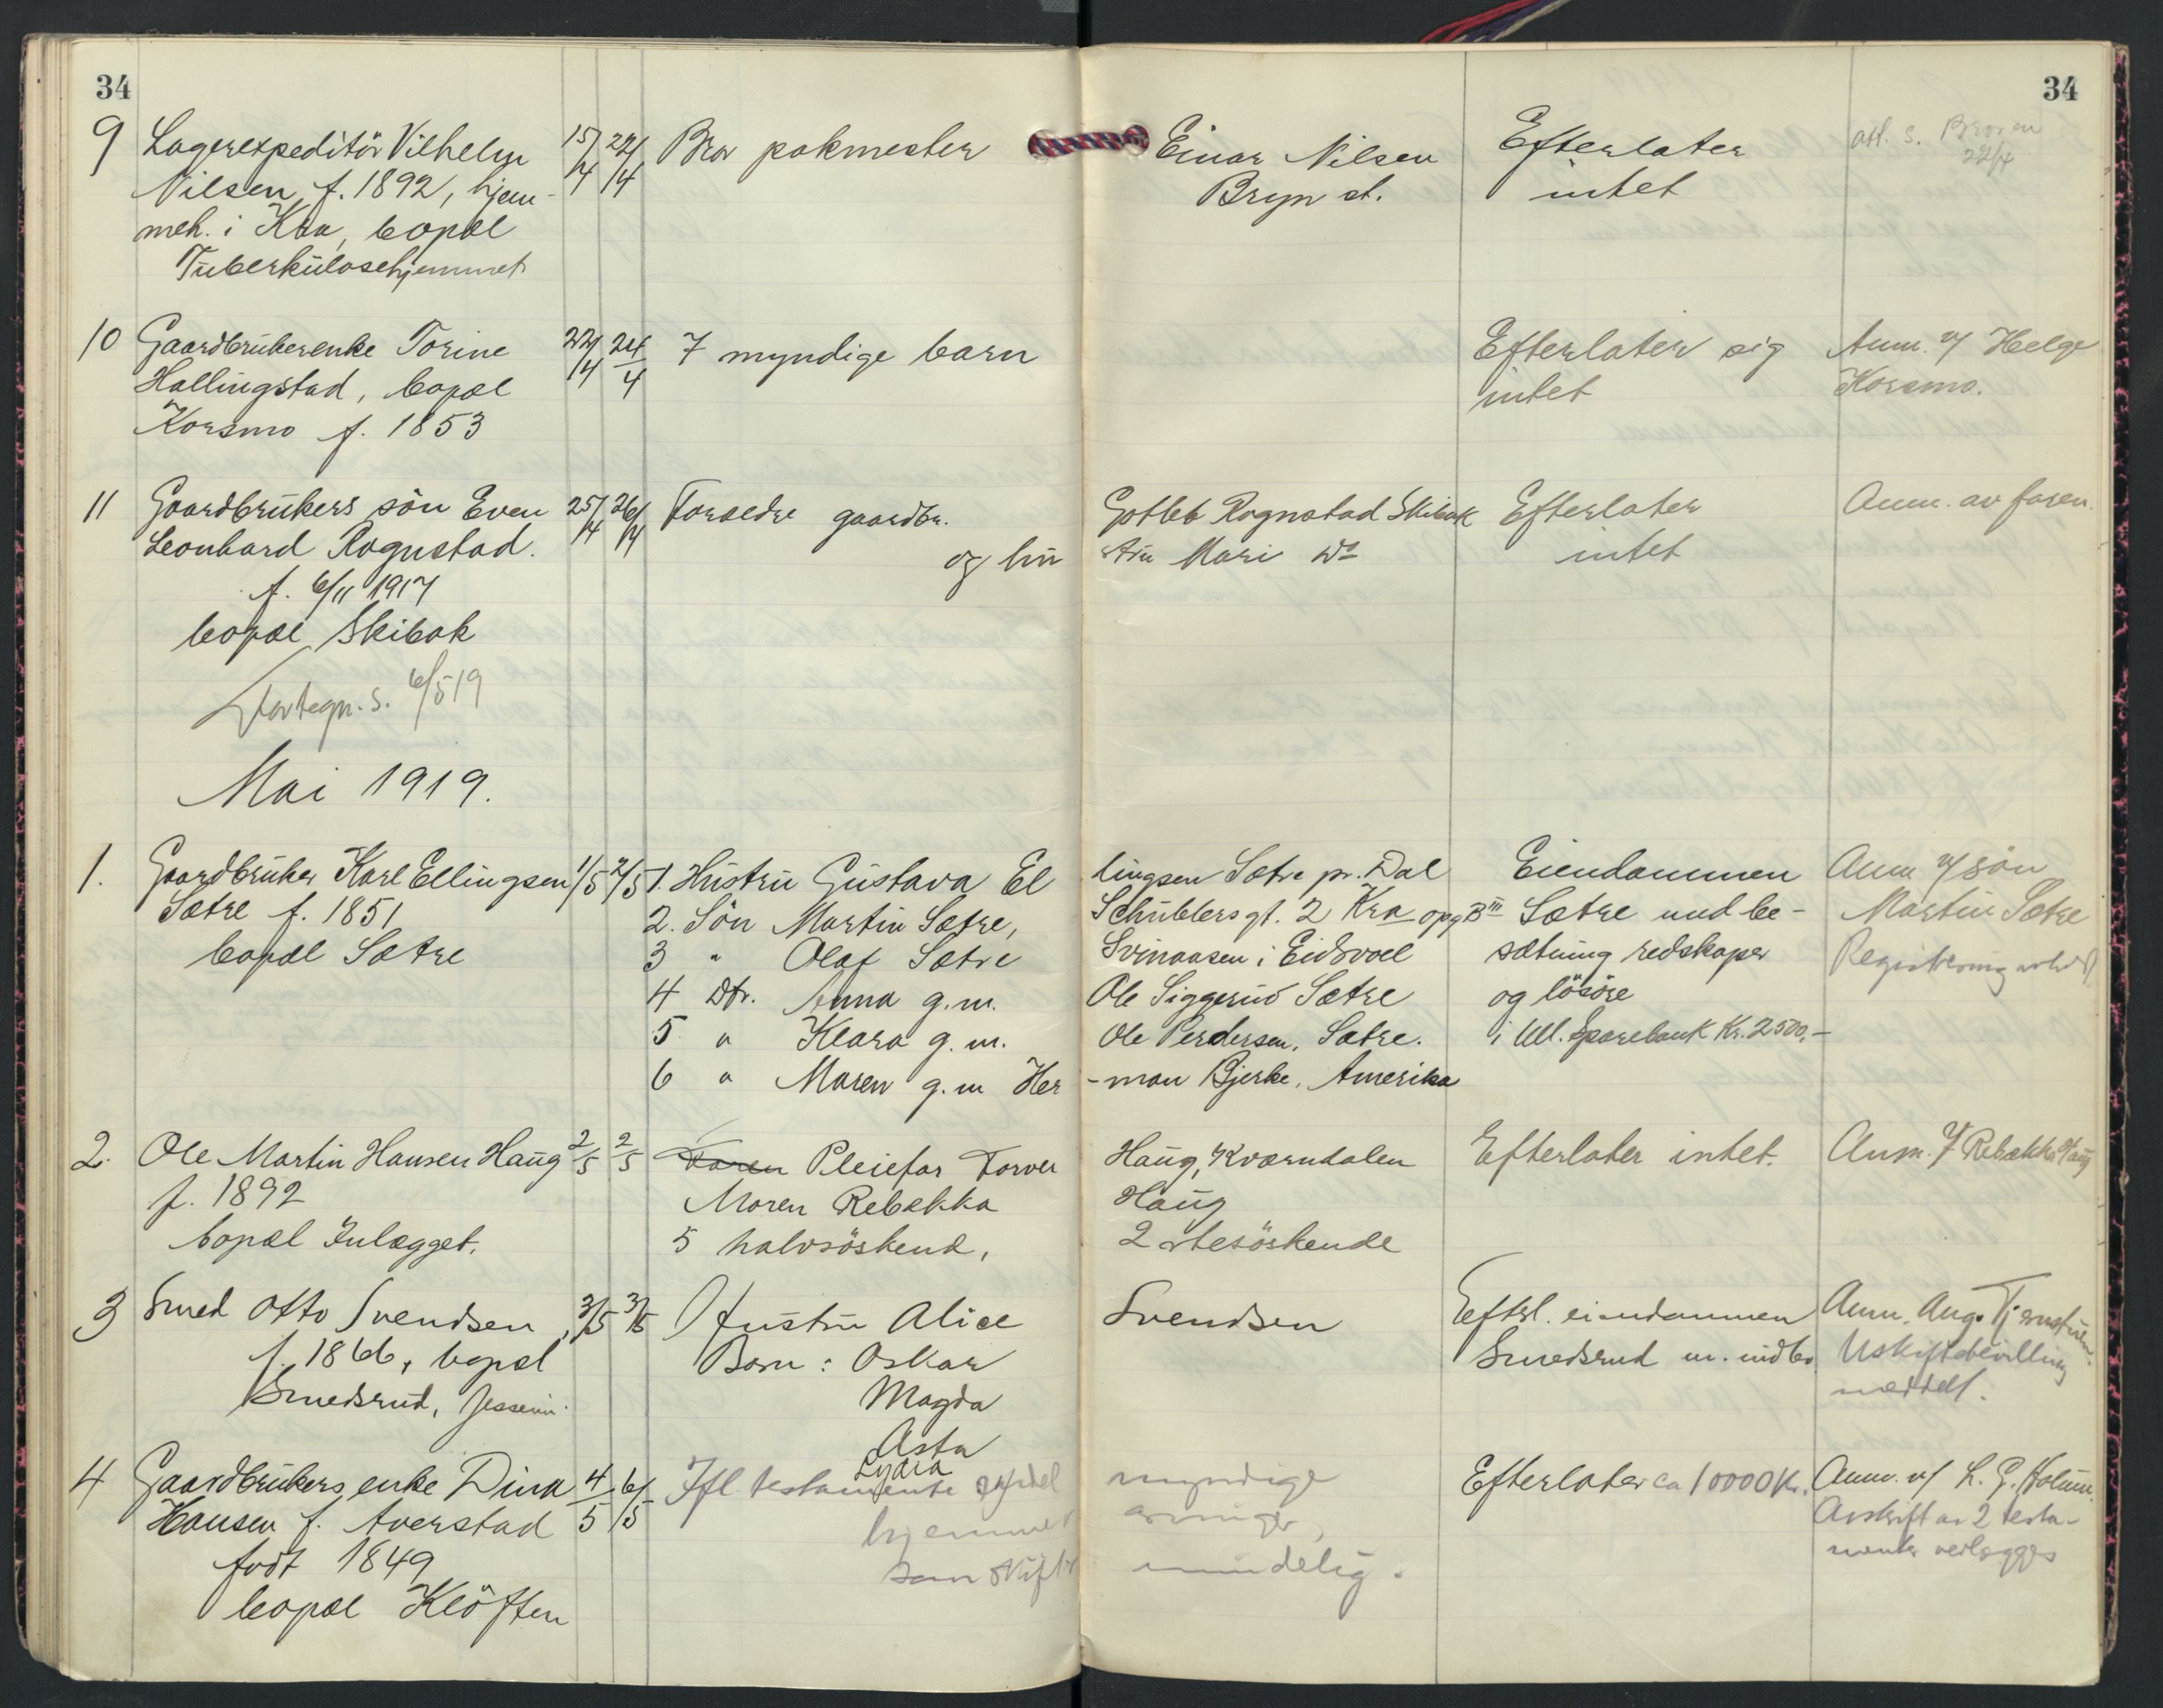 34
34
9 Lagerexpeditör Vilhelm 15/4 22/4 Bror pakmester Einar Nilsen Efterlater att. s. Broren
Nilsen f. 1892, hjem- Bryn st. intet 22/4
meh. i Kra, bopæl
Tuberkulosehjemmet
10 Gaardbrukerenke Torine 22/4 24/4 7 myndige barn Efterlater sig Anm. v/ Helge
Hallingstad, bopæl intet Korsmo.
Korsmo f. 1853
11 Gaardbrukers sön Even 25/4 26/4 Forældre gaardbr. Gotleb Rognstad Skibak Efterlater Anm. av faren.
Leonhard Rognstad. og hu stru Mari do intet
f. 6/11 1917
bopæl Skibak
Fortegn. s. 6/5 19
Mai 1919.
1. Gaardbruker Karl Ellingsen 1/5 2/5 1. Hustru Gustava El lingsen Sætre pr. Dal Eiendommen Anm v/ sön
Sætre f. 1851 2. Sön Martin Sætre, Schüblersgt. 2 Kra opg. B III Sætre med be- Martin Sætre
bopæl Sætre 3 " Olaf Sætre Svinaasen i Eidsvoel sætning redskaper Registrering
4 Dtr. Anna g.m. Ole Siggerud Sætre og lösöre
5 " Klara g.m. Ole Perdersen, Sætre. i Ull. Sparebank Kr. 2500.-
6 " Maren g.m Her -man Bjerke, Amerika
2. Ole Martin Hansen Haug 2/5 2/5 Faren Pleiefar Torver Haug, Kværndalen Efterlater intet. Anm. v/ Rebækka Haug
f. 1892 Moren Rebekka Haug
bopæl Inlægget. 5 halvsöskend, 2 stesöskende
3 Smed Otto Svendsen 3/5 3/5 Hustru Alice Svendsen Efterl. eiendommen Anm. Aug.
f. 1866, bopæl Barn: Oskar Smedsrud m. indbo Uskiftebevilling
Smedsrud, Jessem. Magda meddelt.
Asta
Lydia
4 Gaardbrukers enke Dina 4/5 6/5 Ifl. testamente myndige Efterlater ca 10000 Kr. Anm. v/ L. G. Holum.
Hansen f. Averstad hjemmet arvinger, Avskrift av 2 testa-
født 1849 som skifter mindelig. menter vedlægges
bopæl Klöften